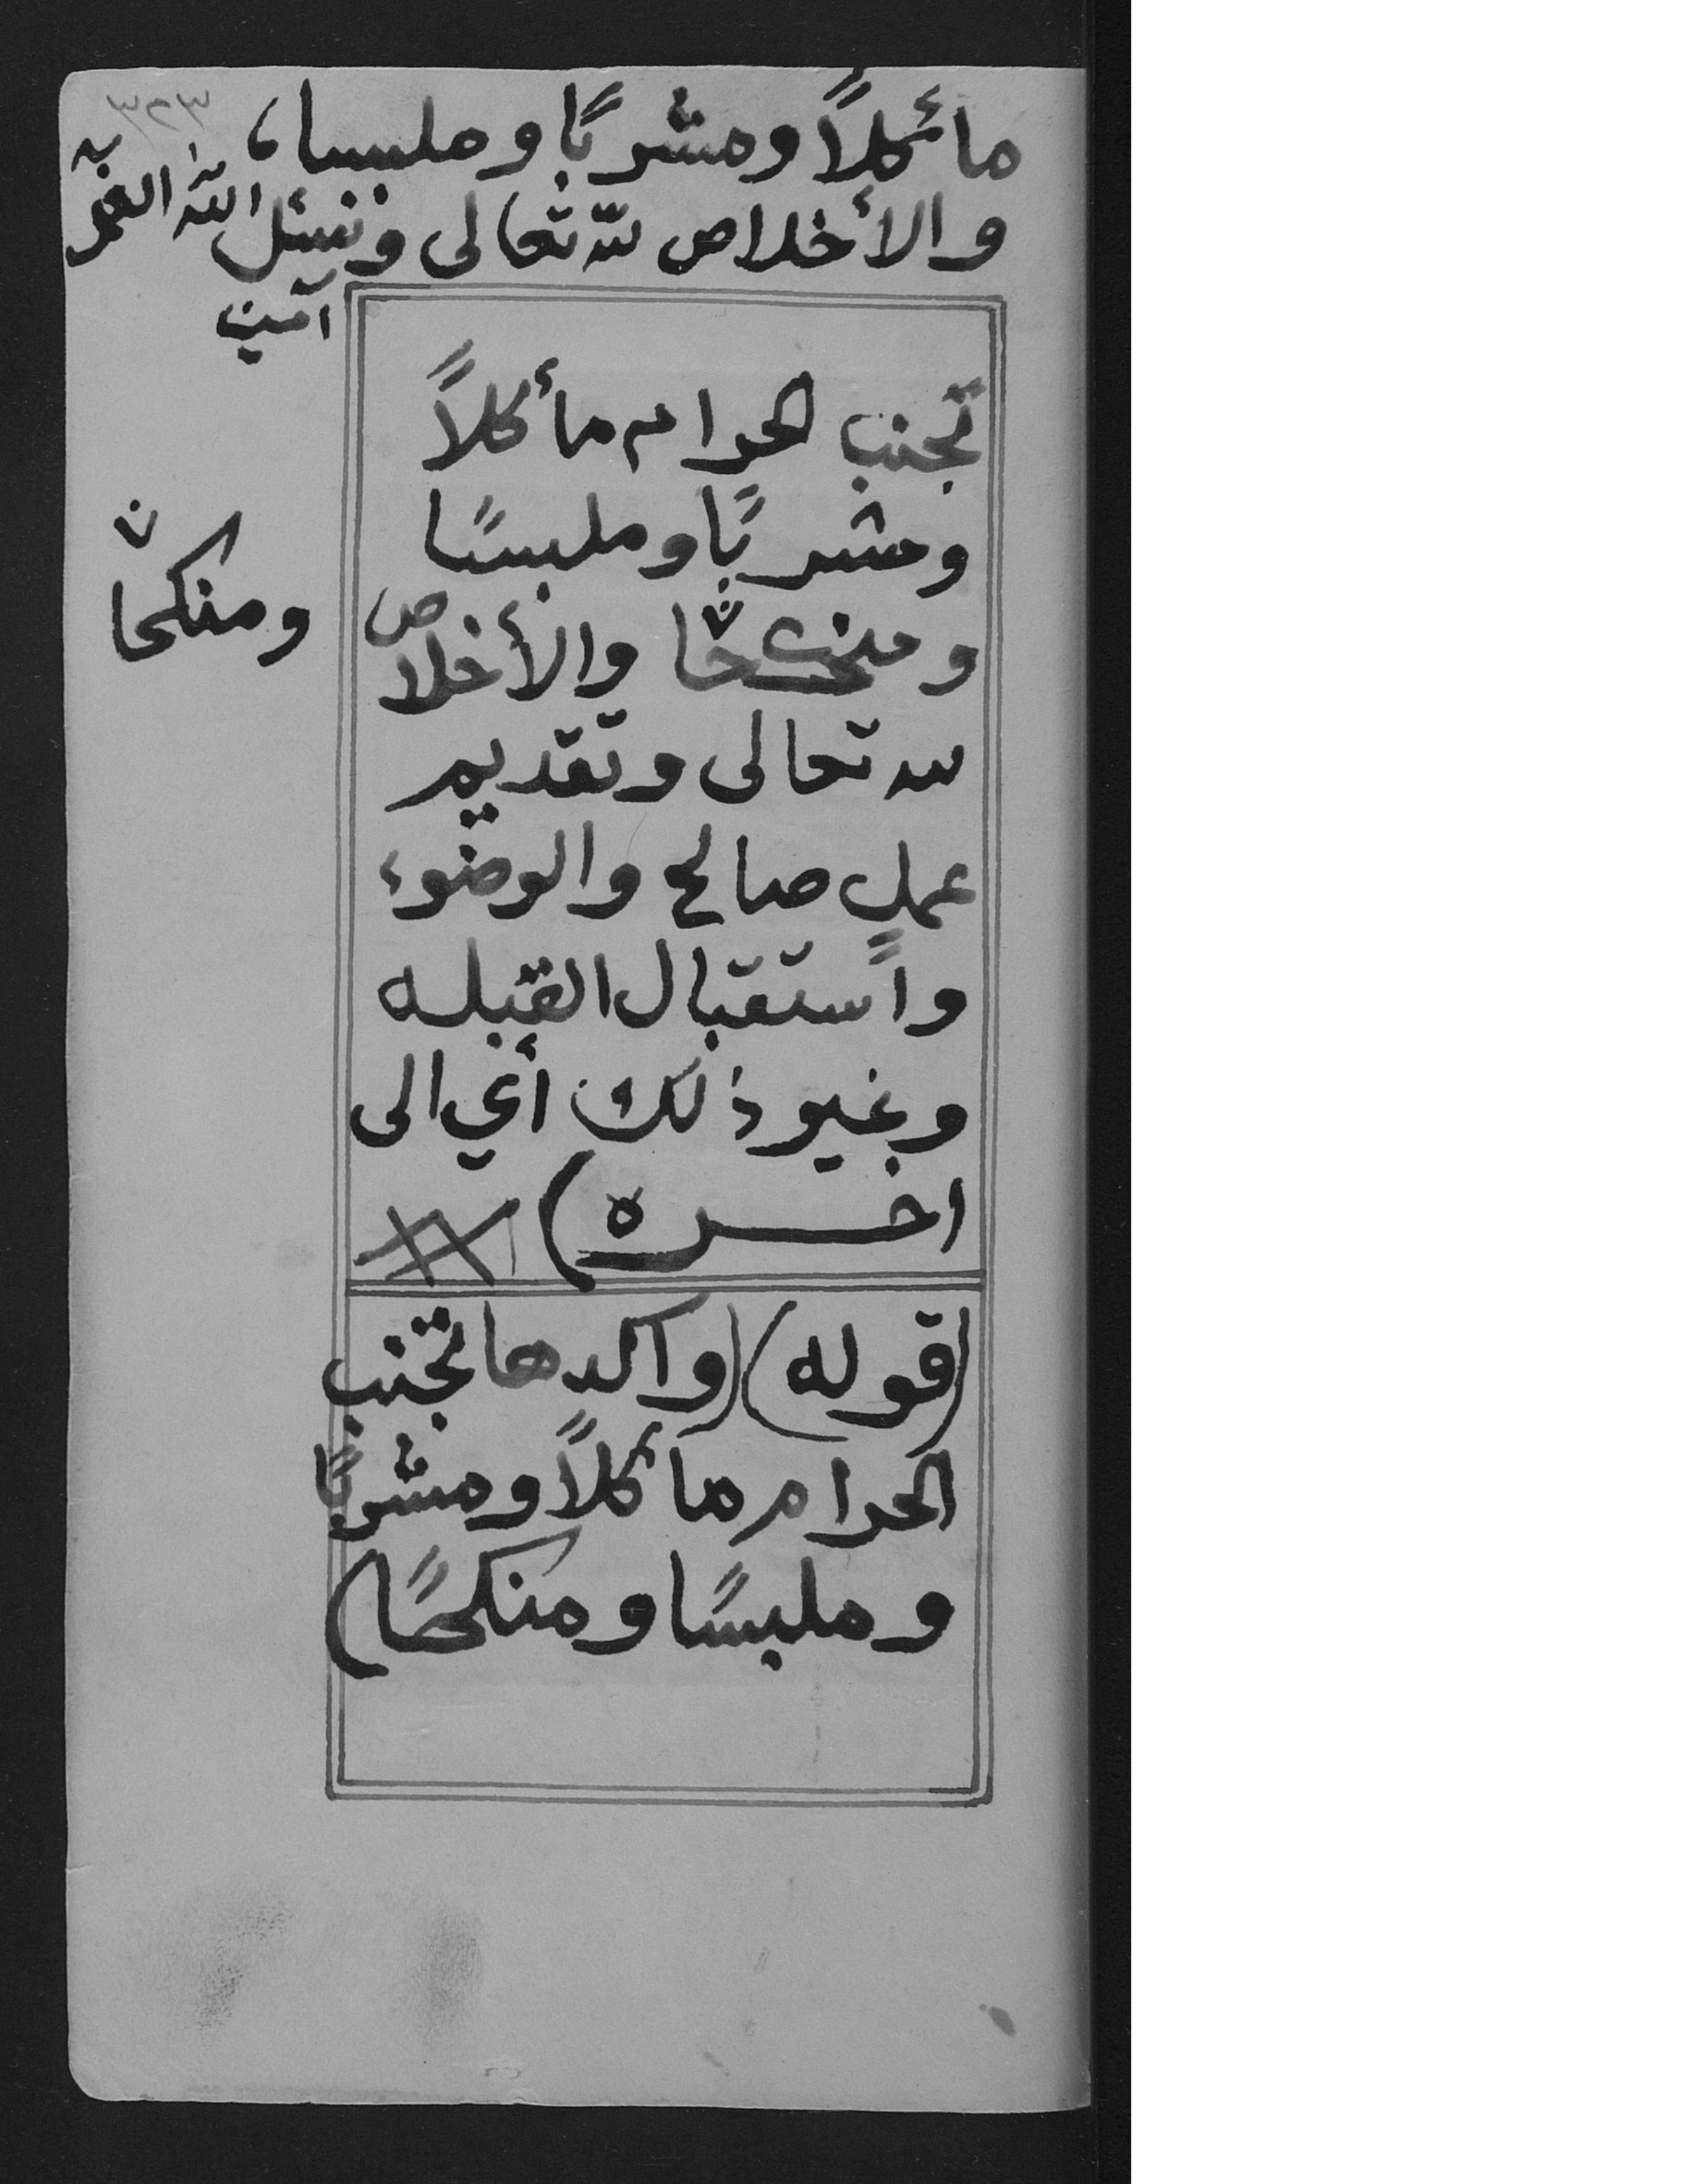 ٣٢٣
مائكلاً ومشربًا وملبسا،
والأخلاص لله تعالى ونسئل الله
آمين
تجنب الحرام مأكلاً
ومشربًا وملبسًا
والأخلاص
ومنكحاً
لله تعالى وتقديم
عملٍ صالح والوضوء
واستقبال القبله
وغير ذلك أي الى
اخره)
(قوله) (واكدها تجنب
الحرام مائكلاً ومشربًا
وملبسًا ومنكحًا)